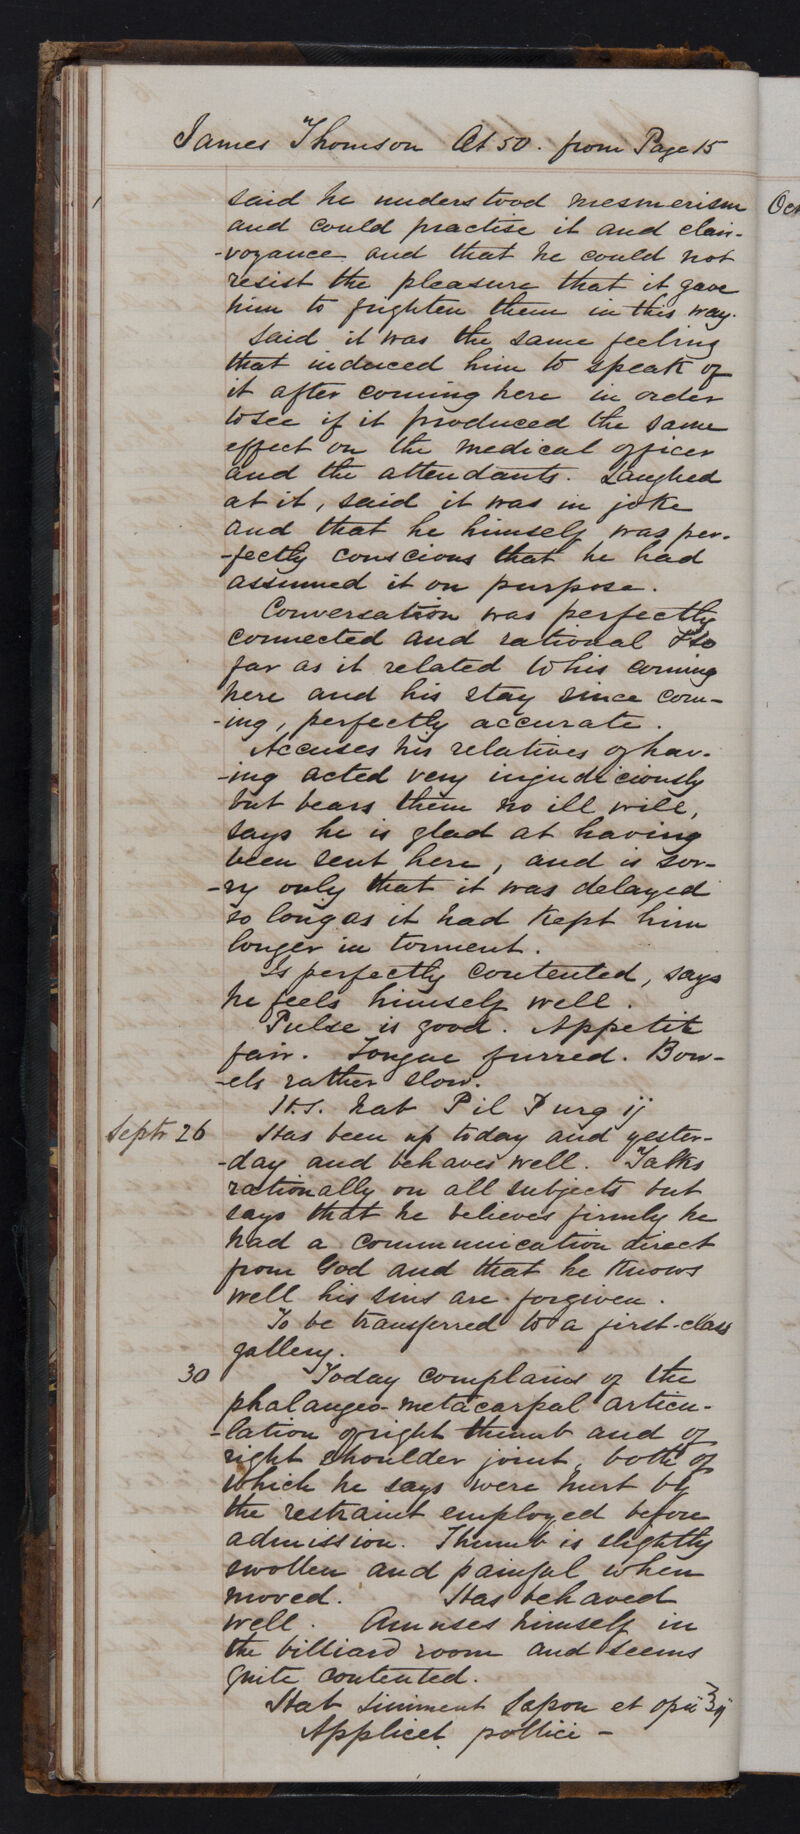 James Thomson Æt 50. from Page 15
said he understood mesmerism
Oct
and could practise it and clair-
-voyance and that he could not
resist the pleasure that it gave
him to frighten them in this way.
Said it was the same feeling
that induced him to speak of
it after coming here in order
to see if it produced the same
effect on the medical officer
and the attendants. Laughed
at it, said it was in joke
and that he himself was per-
-fectly conscious that he had
assumed it on purpose.
Conversation was perfectly
connected and rational & so
far as it related to his coming
here and his stay since com-
-ing, perfectly accurate.
Accuses his relatives of hav-
-ing acted very injudiciously
but bears them no ill will,
says he is glad at having
been sent here, and is sor-
-ry only that it was delayed
so long as it had kept him
longer in torment.
Is perfectly contented, says
he feels himself well.
Pulse is good. Appetite
fair. Tongue furred. Bow-
-els rather slow.
H.S. hab Pil Purg ij
Septr 26 Has been up today and yester-
-day and behaves well. Talks
rationally on all subjects but
says that he believes firmly he
had a communication direct
from God and that he knows
well his sins are forgiven.
To be transferred to a first-class
gallery.
30 Today complains of the
phalangeo-metacarpal articu-
-lation of right thumb and of
right shoulder joint, both of
which he says were hurt by
the restraint employed before
admission. Thumb is slightly
swollen and painful when
moved. Has behaved
well. Amuses himself in
the billiard room and seems
quite contented.
Hab Liniment Sapon et opii ℥ij
Applicet pollici -